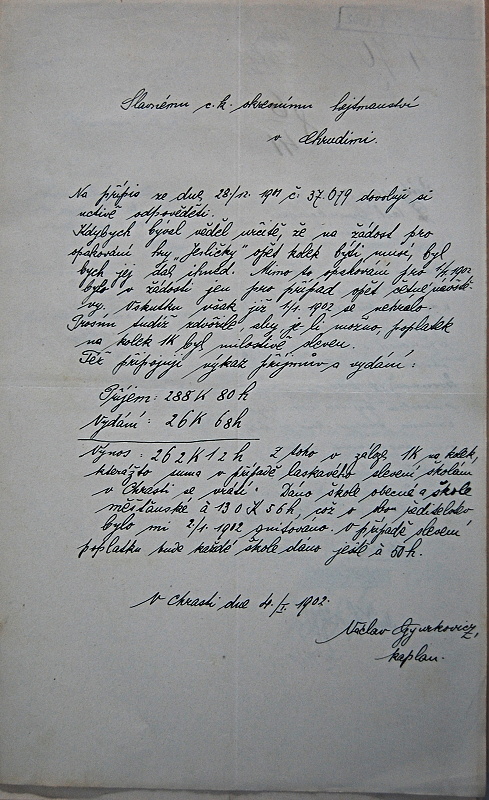 Slavnému c. k. okresnímu hejtmanství
v Chrudimi.
Na přípis ze dne 28/12. 1901 č. 37.079 dovoluji si
uctivě odpověděti.
Kdybych býval věděl určitě, že na žádost pro
opakování hry „Jesličky" opět kolek býti musí, byl
bych jej dal ihned. Mimo to opakování pro 1/1 1902
bylo v žádosti jen pro případ opět četné návště-
vy. Vskutku však již 1/1. 1902 se nehrálo.
Prosím tudíž zdvořile, aby je li možno poplatek
na kolek 1K byl milostivě sleven.
Též připojuji výkaz příjmův a vydání:
Příjem: 288 K 80 h
Vydání: 26 K 68 h
Výnos: 262 K 12 h Z toho v záloze 1K na kolek,
kterážto suma v případě laskavého slevení školám
v Chrasti se vrátí. Dáno škole obecné a škole
měšťanské à 130 K 56 h, což o ředitelstev
bylo mi 2/1 1902 kvitováno. V případě slevení
poplatku bude každé škole dáno ještě à 50 h.
V Chrasti dne 4./I. 1902.
Václav Gyurkovicz,
kaplan.